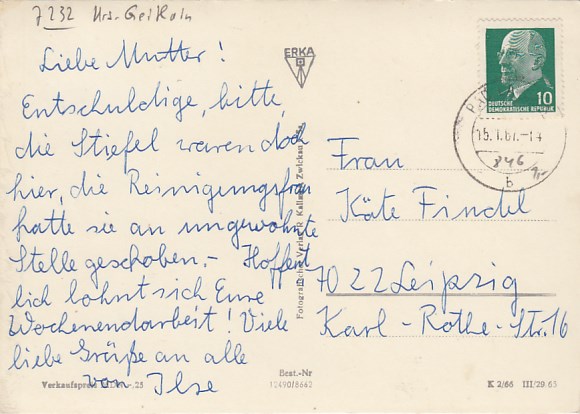 7232
Liebe Mutter!
Entschuldige, bitte,
die Stiefel waren doch
hier, die Reinigungsfrau
hatte sie an ungewohnte
Stelle geschoben.- Hoffent
lich lohnt sich Eure
Wochenendarbeit! Viele
liebe Grüße an alle
von Ilse
Verkaufspreis
-.25
ERKA
Fotografischer Verlag R. Kallmer Zwickau
Best.-Nr
12490/8662
DEUTSCHE
DEMOKRATISCHE REPUBLIK
10
15.1.67.-14
846
b
Frau
Käte Findel
7022 Leipzig
Karl-Rothe-Str. 16
K 2/66 III/29.65